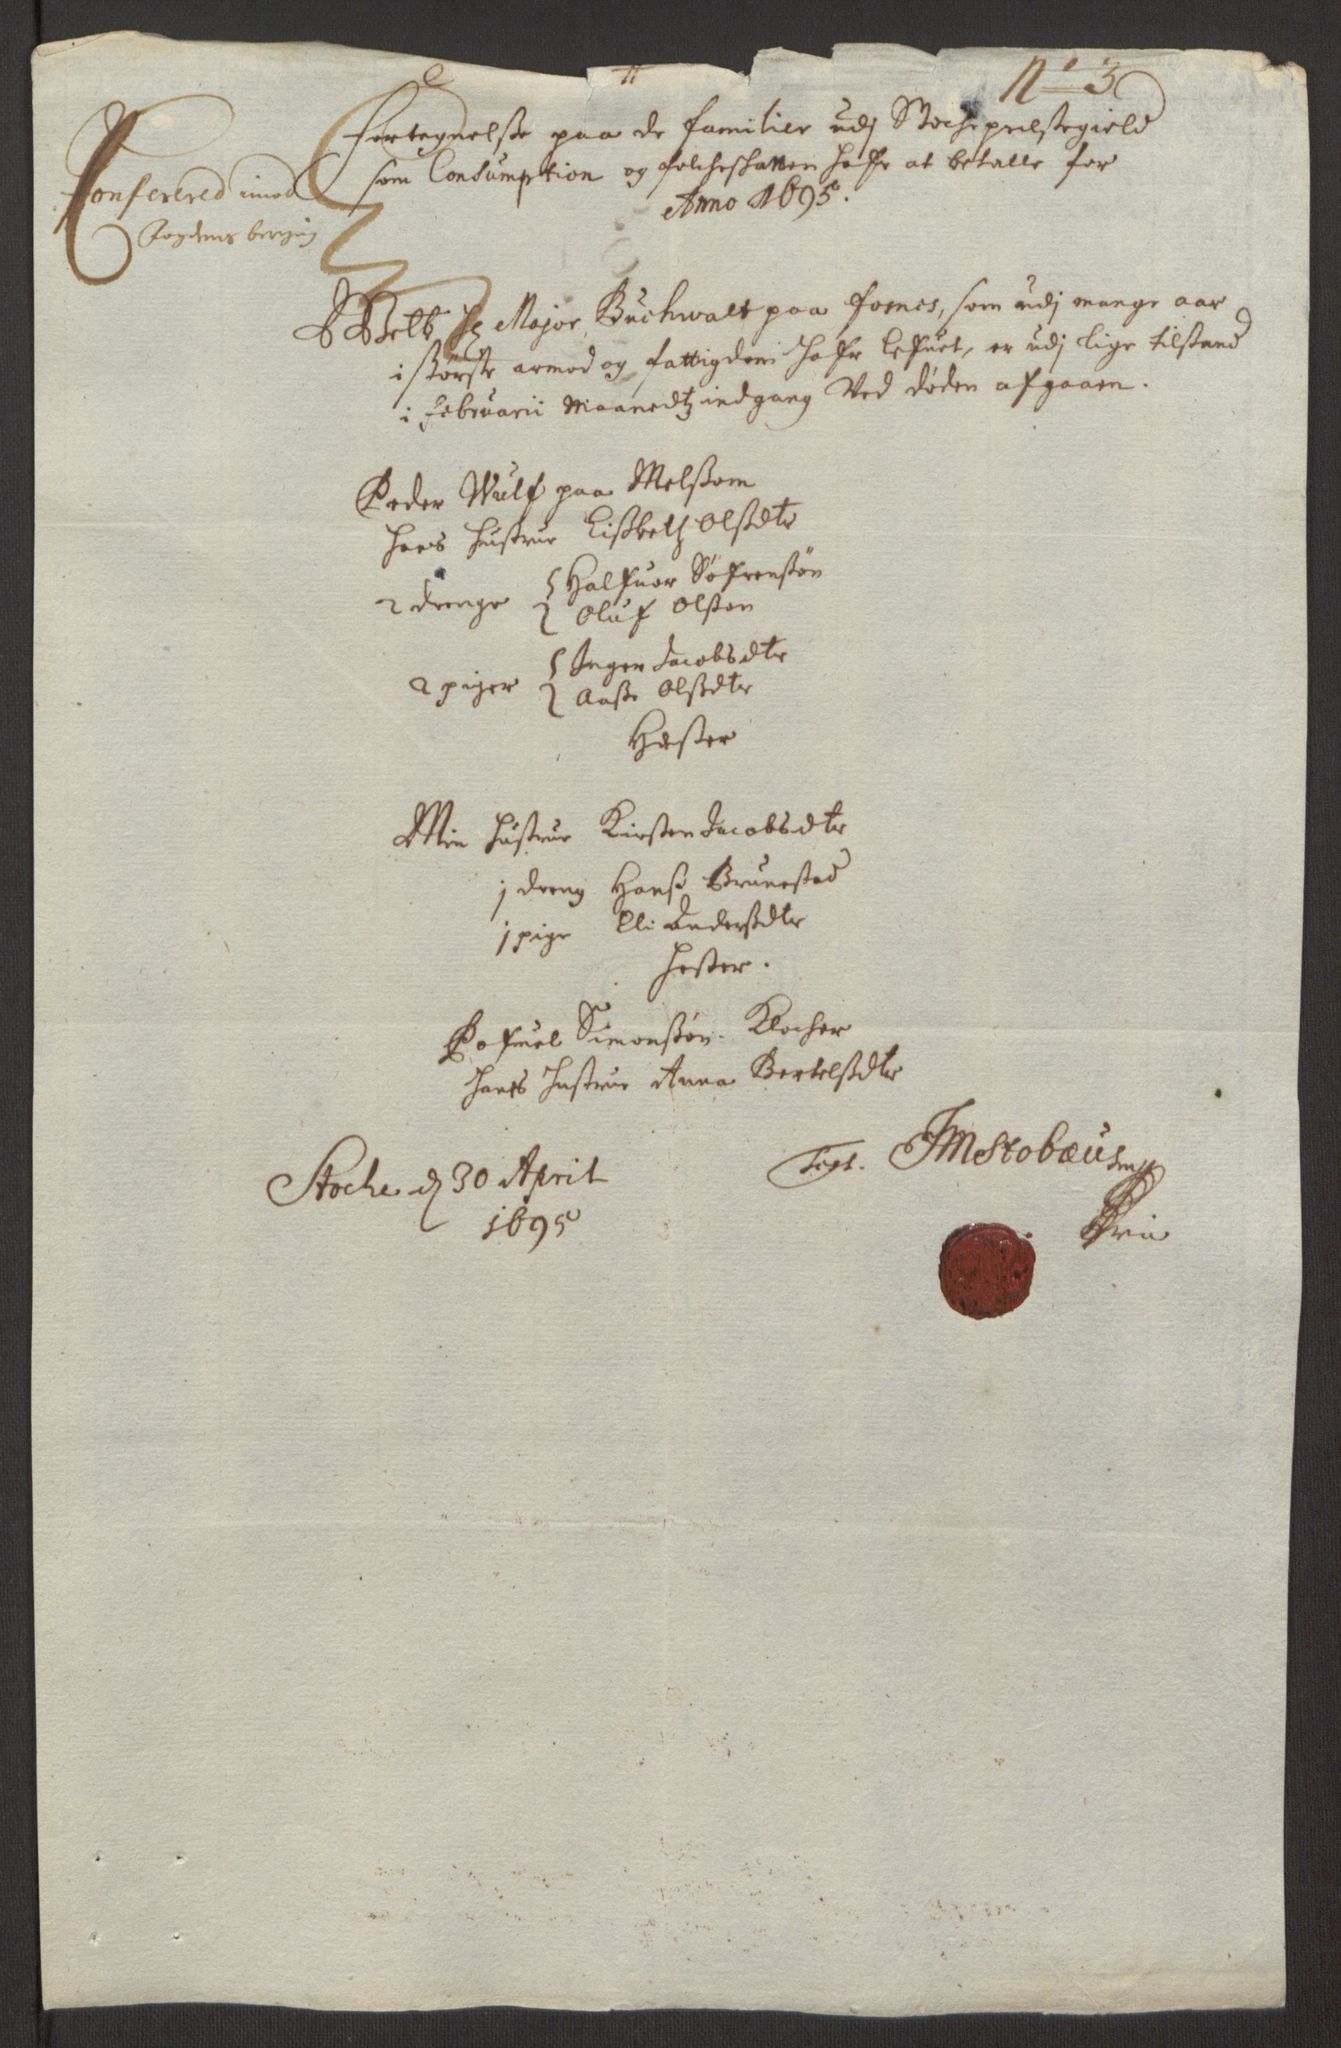 No 3
Fortegnelse paa de familier udj Stoche prelstegield
som Consumption og folcheskatten hafr at betalle for
Anno 1695.
Conferered imod
Fogdens
Welb Hr Major Buchwalt paa Fosnes, som udj mange aar
i største armod og fattigdom hafr lefuet, er udj lige tilstand
i Februarii Maanedtz indgang Ved døden afgaaen.
Peder Wulf paa Melsom
Hans Hustrue Lissbeth Olssdtr
2 drenge { Halfuor Søfrenssøn
Oluf Olsson
2 piger { Inger Jacobsdtr
Aasse Olssdtr
Hæster
Min Hustrue Kirsten Jacobsdtr
1 dreng Hans Brunestad
1 pige Eli Anderssdtr
Hester.
Pofuel Simonssøn Klocher
Hans Hustrue Anna Bertelssdtr
Stoche d 30 April
1695
Test. JMStobæus